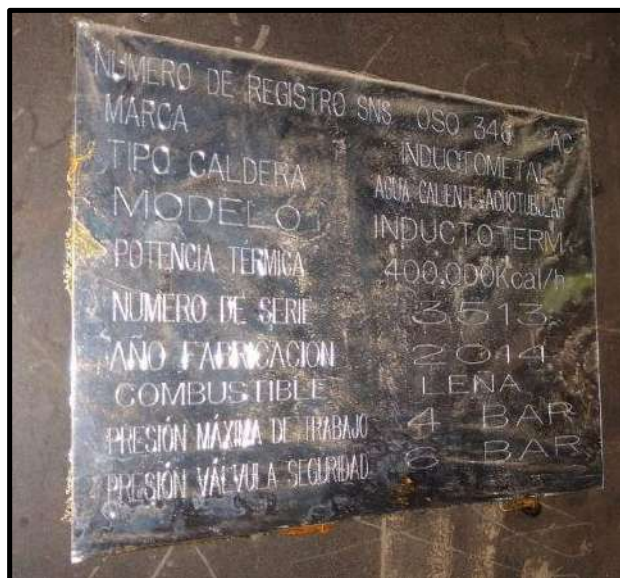 NUMERO DE REGISTRO SNS OSO 346 AC
MARCA INDUCTOMETAL
TIPO CALDERA AGUA CALIENTE-ACUOTUBULAR
MODELO INDUCTOTERM
POTENCIA TÉRMICA 400.000Kcal/h
NUMERO DE SERIE 3513
AÑO FABRICACION 2014
COMBUSTIBLE LEÑA
PRESIÓN MÁXIMA DE TRABAJO 4 BAR
PRESIÓN VÁLVULA SEGURIDAD 6 BAR